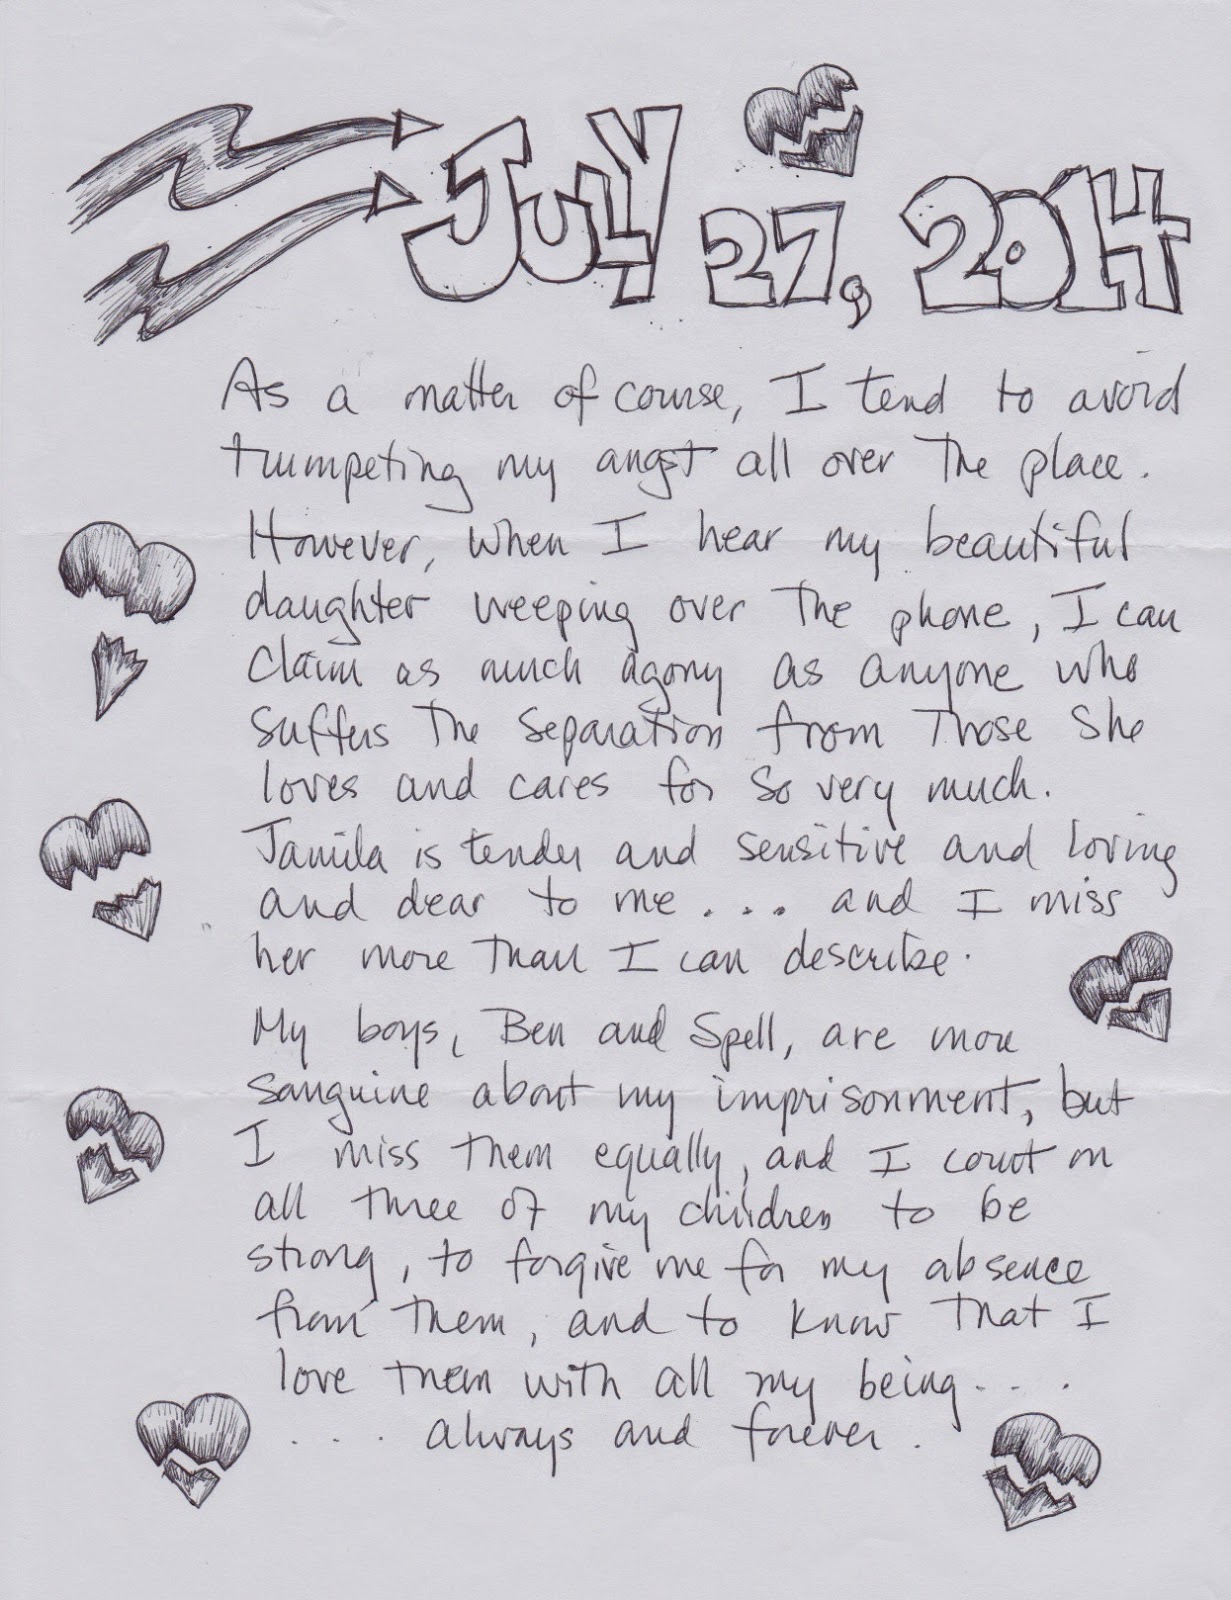 JULY 27, 2014
As a matter of course, I tend to avoid
trumpeting my angst all over the place.
However, when I hear my beautiful
daughter weeping over the phone, I can
claim as much agony as anyone who
suffers the separation from those she
loves and cares for so very much.
Jamila is tender and sensitive and loving
and dear to me . . . and I miss
her more than I can describe.
My boys, Ben and Spell, are more
sanguine about my imprisonment, but
I miss them equally, and I count on
all three of my children to be
strong, to forgive me for my absence
from them, and to know that I
love them with all my being . . .
. . . always and forever.